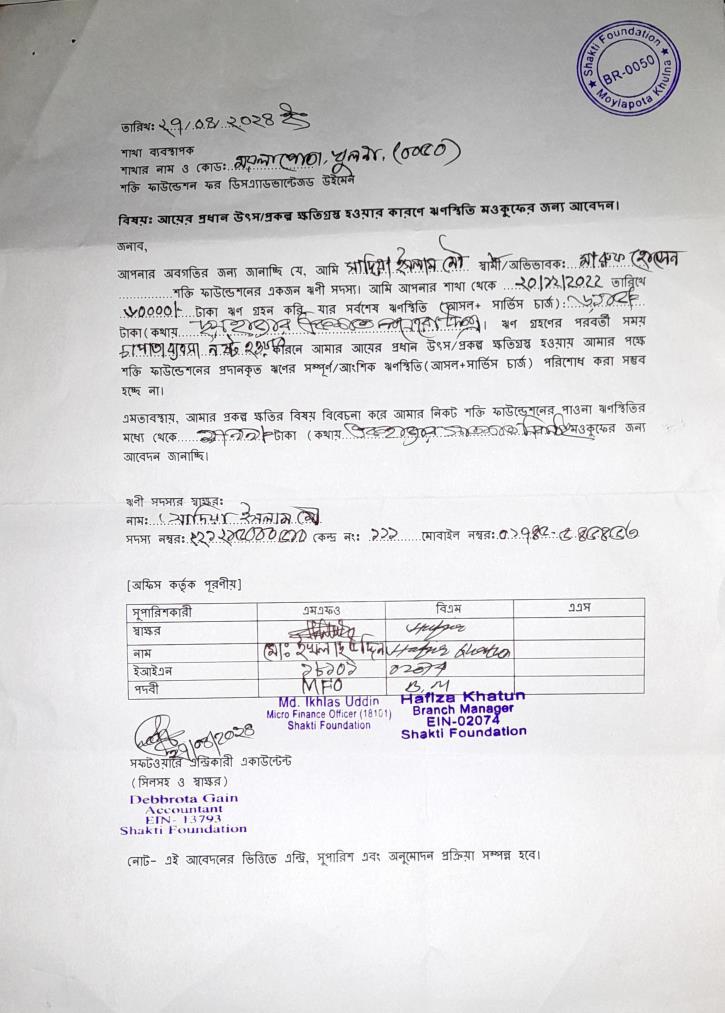 Shakti Foundation
BR-0050
Moylapota Khulna
তারিখ: ২৭/০৪/২০২৪
শাখা ব্যবস্থাপক
শাখার নাম ও কোড: ময়লাপোতা, খুলনা, (০০৫০)
শক্তি ফাউন্ডেশন ফর ডিসএ্যাডভান্টেজড উইমেন
বিষয়: আয়ের প্রধান উৎস/প্রকল্প ক্ষতিগ্রস্থ হওয়ার কারণে ঋণস্থিতি মওকুফের জন্য আবেদন।
জনাব,
আপনার অবগতির জন্য জানাচ্ছি যে, আমি সাদিয়া ইসলাম মৌ স্বামী/অভিভাবক: মারুফ হোসেন
শক্তি ফাউন্ডেশনের একজন ঋনী সদস্য। আমি আপনার শাখা থেকে ২০/১২/২০২২ তারিখে
টাকা ঋণ গ্রহন করি, যার সর্বশেষ ঋণস্থিতি (আসল+ সার্ভিস চার্জ):
টাকা(কথায় ঋণ গ্রহণের পরবর্তী সময়
কারনে আমার আয়ের প্রধান উৎস/প্রকল্প ক্ষতিগ্রস্থ হওয়ায় আমার পক্ষে
শক্তি ফাউন্ডেশনের প্রদানকৃত ঋণের সম্পূর্ণ/আংশিক ঋণস্থিতি(আসল+সার্ভিস চার্জ) পরিশোধ করা সম্ভব
হচ্ছে না।
এমতাবস্থায়, আমার প্রকল্প ক্ষতির বিষয় বিবেচনা করে আমার নিকট শক্তি ফাউন্ডেশনের পাওনা ঋণস্থিতির
মধ্যে থেকে টাকা (কথায় মওকুফের জন্য
আবেদন জানাচ্ছি।
ঋনী সদস্যর স্বাক্ষর:
নাম: সাদিয়া ইসলাম মৌ
সদস্য নম্বর: কেন্দ্র নং: ১১১ মোবাইল নম্বর:
[অফিস কর্তৃক পূরনীয়]
সুপারিশকারী এমএফও বিএম এএস
স্বাক্ষর
নাম মোঃ ইখলাছ উদ্দিন Hafiza Khatun
ইআইএন ১৮১০১ ০২০৭৪
পদবী MFO B.M
Md. Ikhlas Uddin
Micro Finance Officer (18101)
Shakti Foundation
Hafiza Khatun
Branch Manager
EIN-02074
Shakti Foundation
২৭/০৪/২০২৪
সফটওয়ারে এন্ট্রিকারী একাউন্টেন্ট
(সিলসহ ও স্বাক্ষর)
Debbrota Gain
Accountant
EIN- 13793
Shakti Foundation
নোট- এই আবেদনের ভিত্তিতে এন্ট্রি, সুপারিশ এবং অনুমোদন প্রক্রিয়া সম্পন্ন হবে।